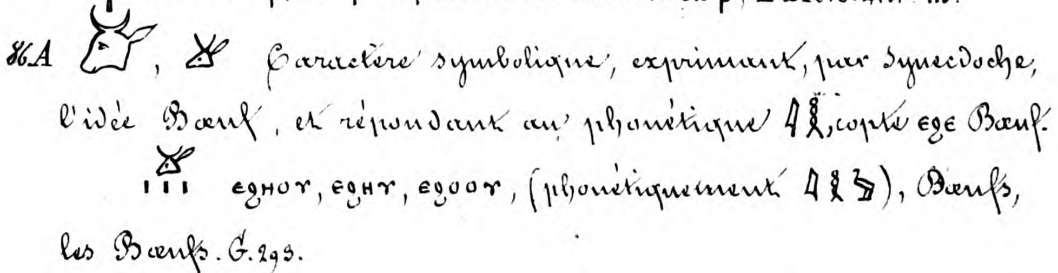 86.A 𓃾, 𓃾 Caractère symbolique, exprimant, par synecdoche,
l'idée Bœuf, et répondant au phonétique 𓇋𓎛, copte ⲉϩⲉ Bœuf.
𓃾 ı ı ı ⲉϩⲏⲟⲩ, ⲉϩⲏⲩ, ⲉϩⲟⲟⲩ, (phonétiquement 𓇋𓎛), Bœufs,
les Bœufs. G. 293.